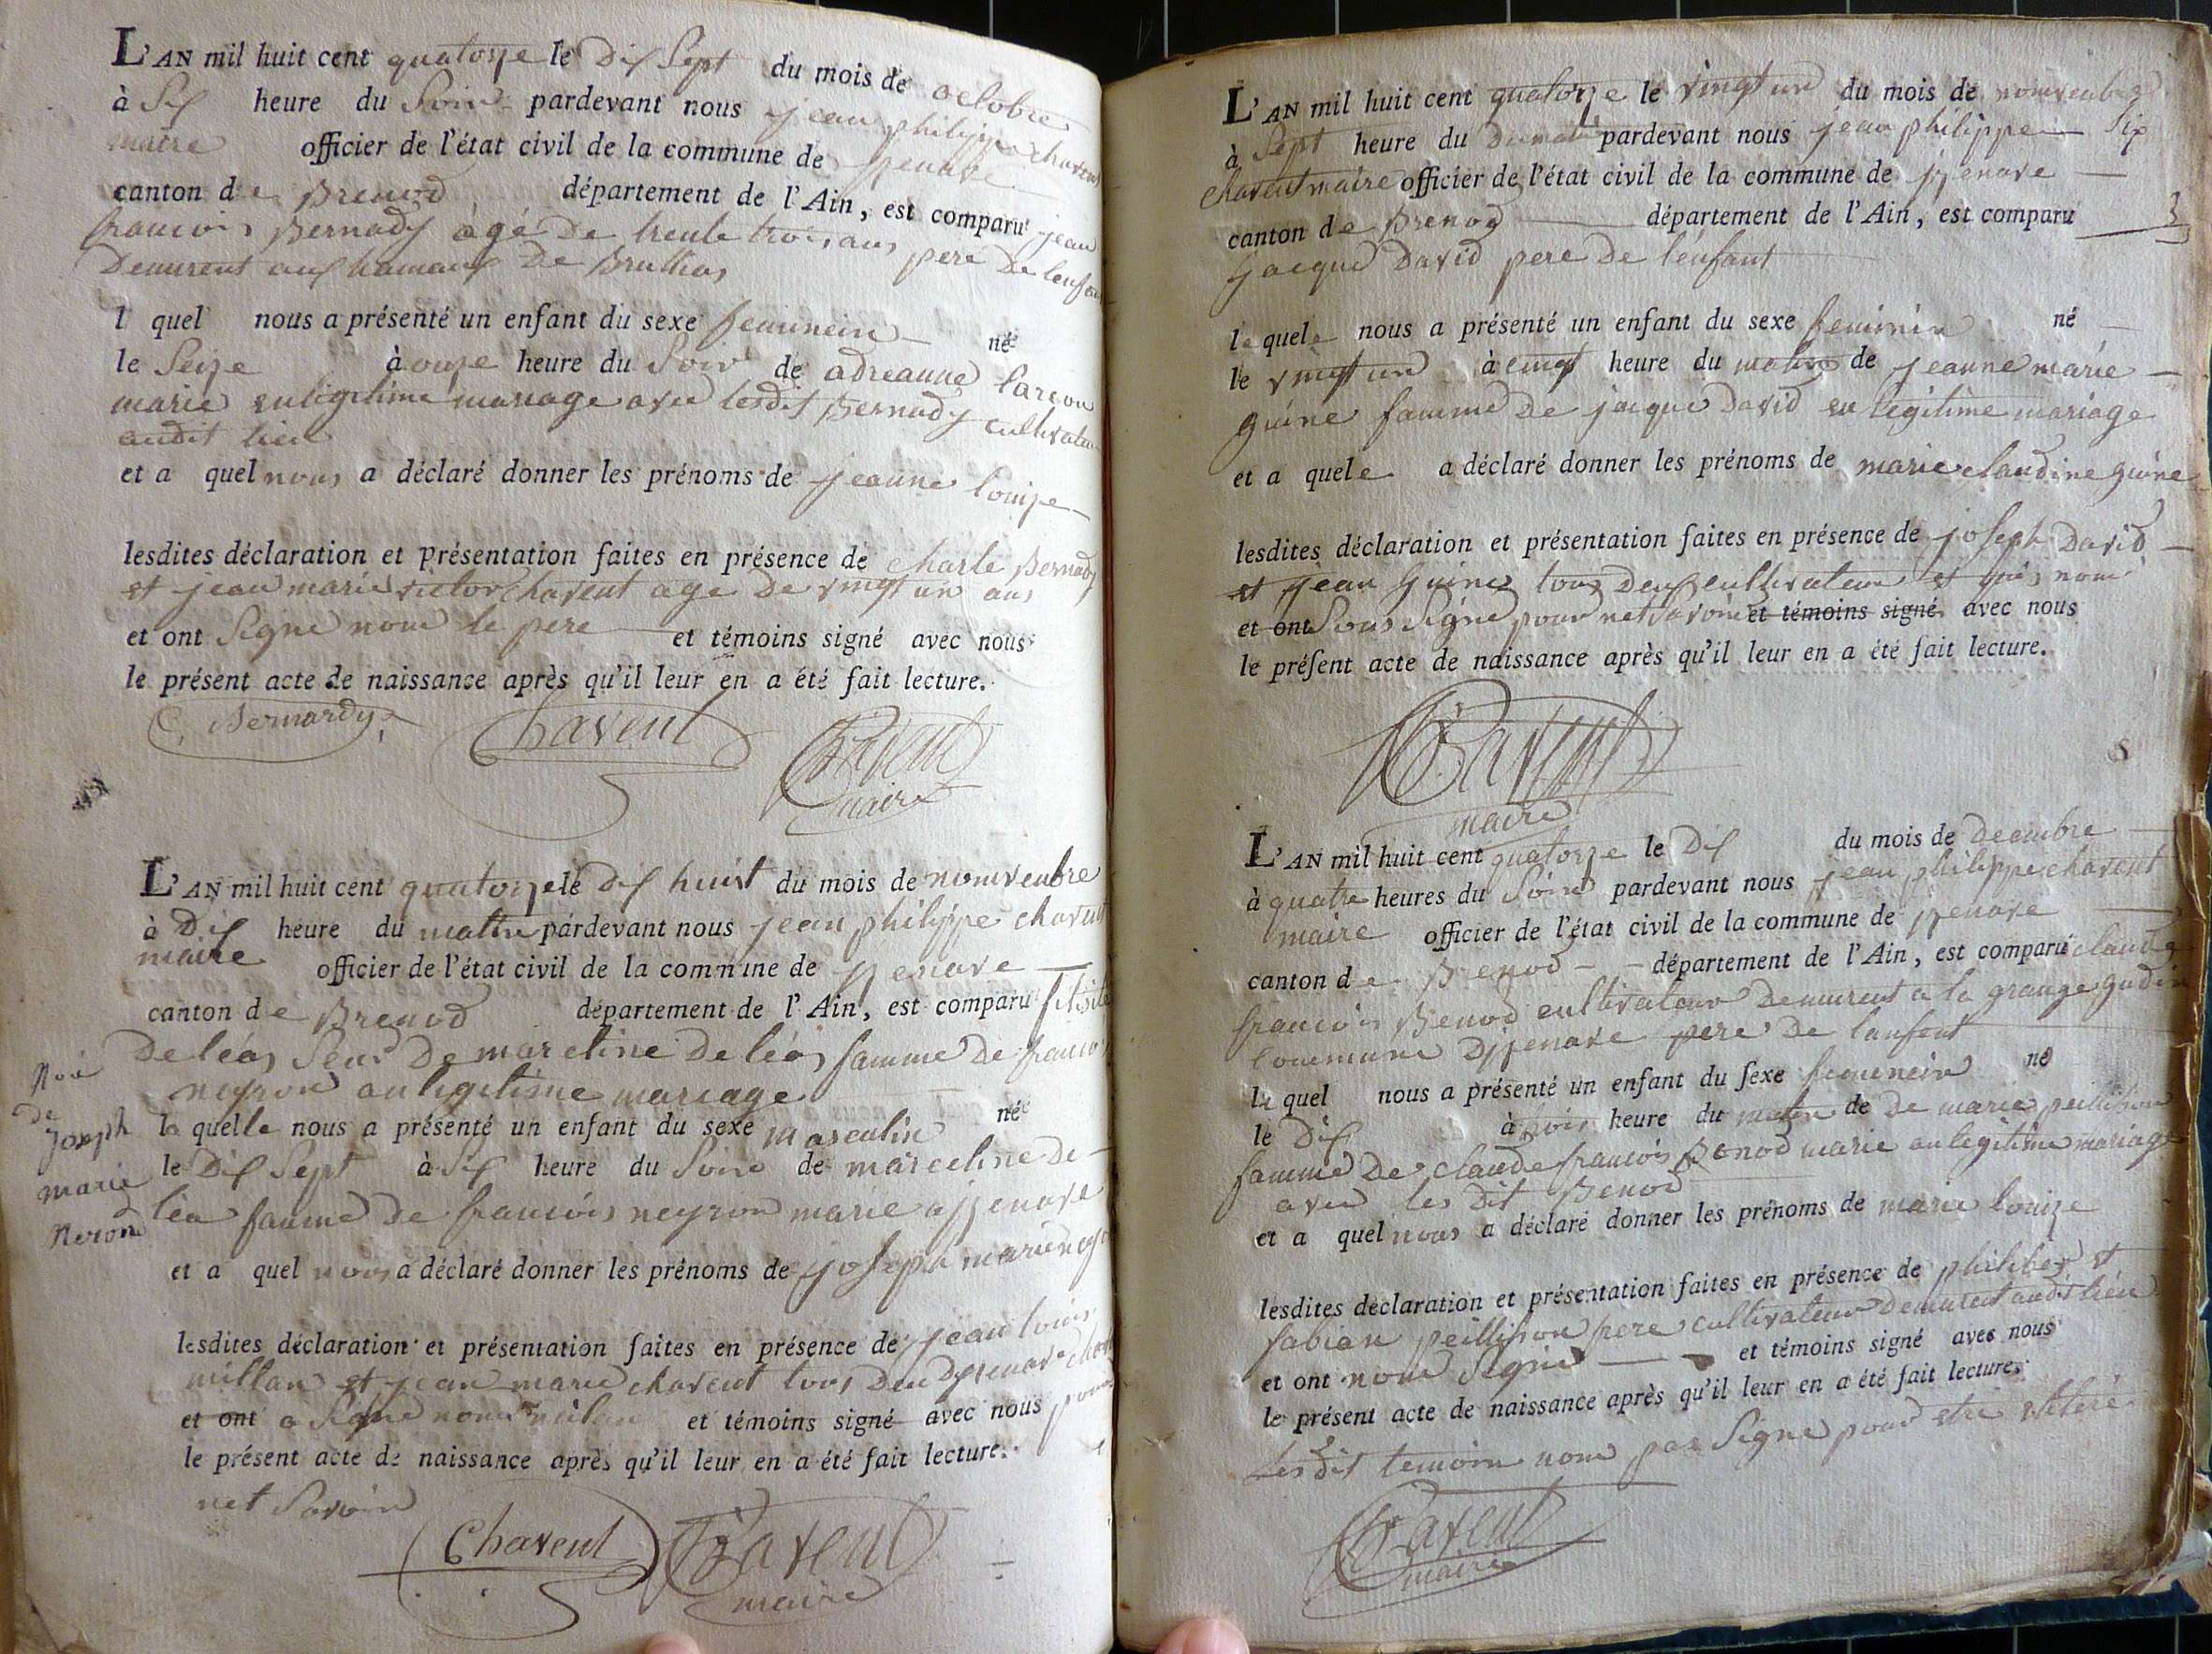 L'AN mil huit cent quatorze le Dix Sept du mois de octobre
à Six heure du Soir pardevant nous jean philippe chavent
maire officier de l'état civil de la commune de jzenave
canton de Brenod département de l'Ain, est comparu jean
francois Bernady àgé De trente trois ans pere De lenfant
Demurent aux hameaux De
l quel nous a présenté un enfant du sexe feminein né
le Seize à onze heure du Soir de adreanne larcon
marie enligitime mariage avec lesdit Bernady cultivateur
audit lieu
et a quel nous a déclaré donner les prénoms de jeanne louize
lesdites déclaration et présentation faites en présence de charle Bernady
et jean marie victor Chavent age De vingt un ans
et ont Signe nom le pere et témoins signé avec nous
le présent acte de naissance après qu'il leur en a été fait lecture.
C. Bernardy Chavent Chavent
maire
L'AN mil huit cent quatorze le dix huit du mois de nomvenbre
à Dix heure du matin pardevant nous jean philippe chavent
maire officier de l'état civil de la commune de jzenave
canton de Brenod département de l'Ain, est comparu
De léas Seur De marceline De léas famme De francois
neyron anligitime mariage
la quelle nous a présenté un enfant du sexe masculin né
le Dix Sept à Six heure du Soir de marceline De
léa famme De francois neyron marie a jzenave
et a quel nous a déclaré donner les prénoms de joseph marie
lesdites déclaration et présentation faites en présence de jean louis
millan et jean marie chavent tous Deu Djzenave
et ont a Signe nom milan et témoins signé avec nous pour
le présent acte de naissance après qu'il leur en a été fait lecture.
net Savoir
Chavent Chavent
maire
Noié
de
Joseph
marie
Neron
L'AN mil huit cent quatorze le vingt un du mois de nomvenbre
à Sept heure du Dumatin pardevant nous jean philippe Six
chavent maire officier de l'état civil de la commune de jzenave
canton de Brenod département de l'Ain, est comparu 3
jacque David pere De l'enfant
le quele nous a présenté un enfant du sexe feminin né
le vingt un à cinq heure du matin de jeanne marie
guine famme De jacque David en legitime mariage
et a quele a déclaré donner les prénoms de marie claudine guine
lesdites déclaration et présentation faites en présence de joseph David
et jean Guine tous Deux cultivateur et nom
et ont Sous Signe pour net Savoir et témoins signé avec nous
le présent acte de naissance après qu'il leur en a été fait lecture.
Chavent
maire
L'AN mil huit cent quatorze le Dix du mois de decembre
à quatre heures du Soir pardevant nous jean philippe chavent
maire officier de l'état civil de la commune de jzenave
canton de Brenod département de l'Ain, est comparu claude
francois Benod cultivateur Demurent a la grange gudin
Commune Djzenave pere De lanfent
le quel nous a présenté un enfant du sexe feminein né
le Dix à trois heure du matin de De marie peillision
famme De claude francois Benod marie an legitime mariage
avec les Dit Benod
et a quel nous a déclaré donner les prénoms de marie louize
lesdites declaration et présentation faites en présence de philiber et
fabian peillision frere cultivateur Demurent audit lieu
et ont nom Signe et témoins signé avec nous
le présent acte de naissance après qu'il leur en a été fait lecture.
Les dit temoin nom pas Signe pour etre
Chavent
maire